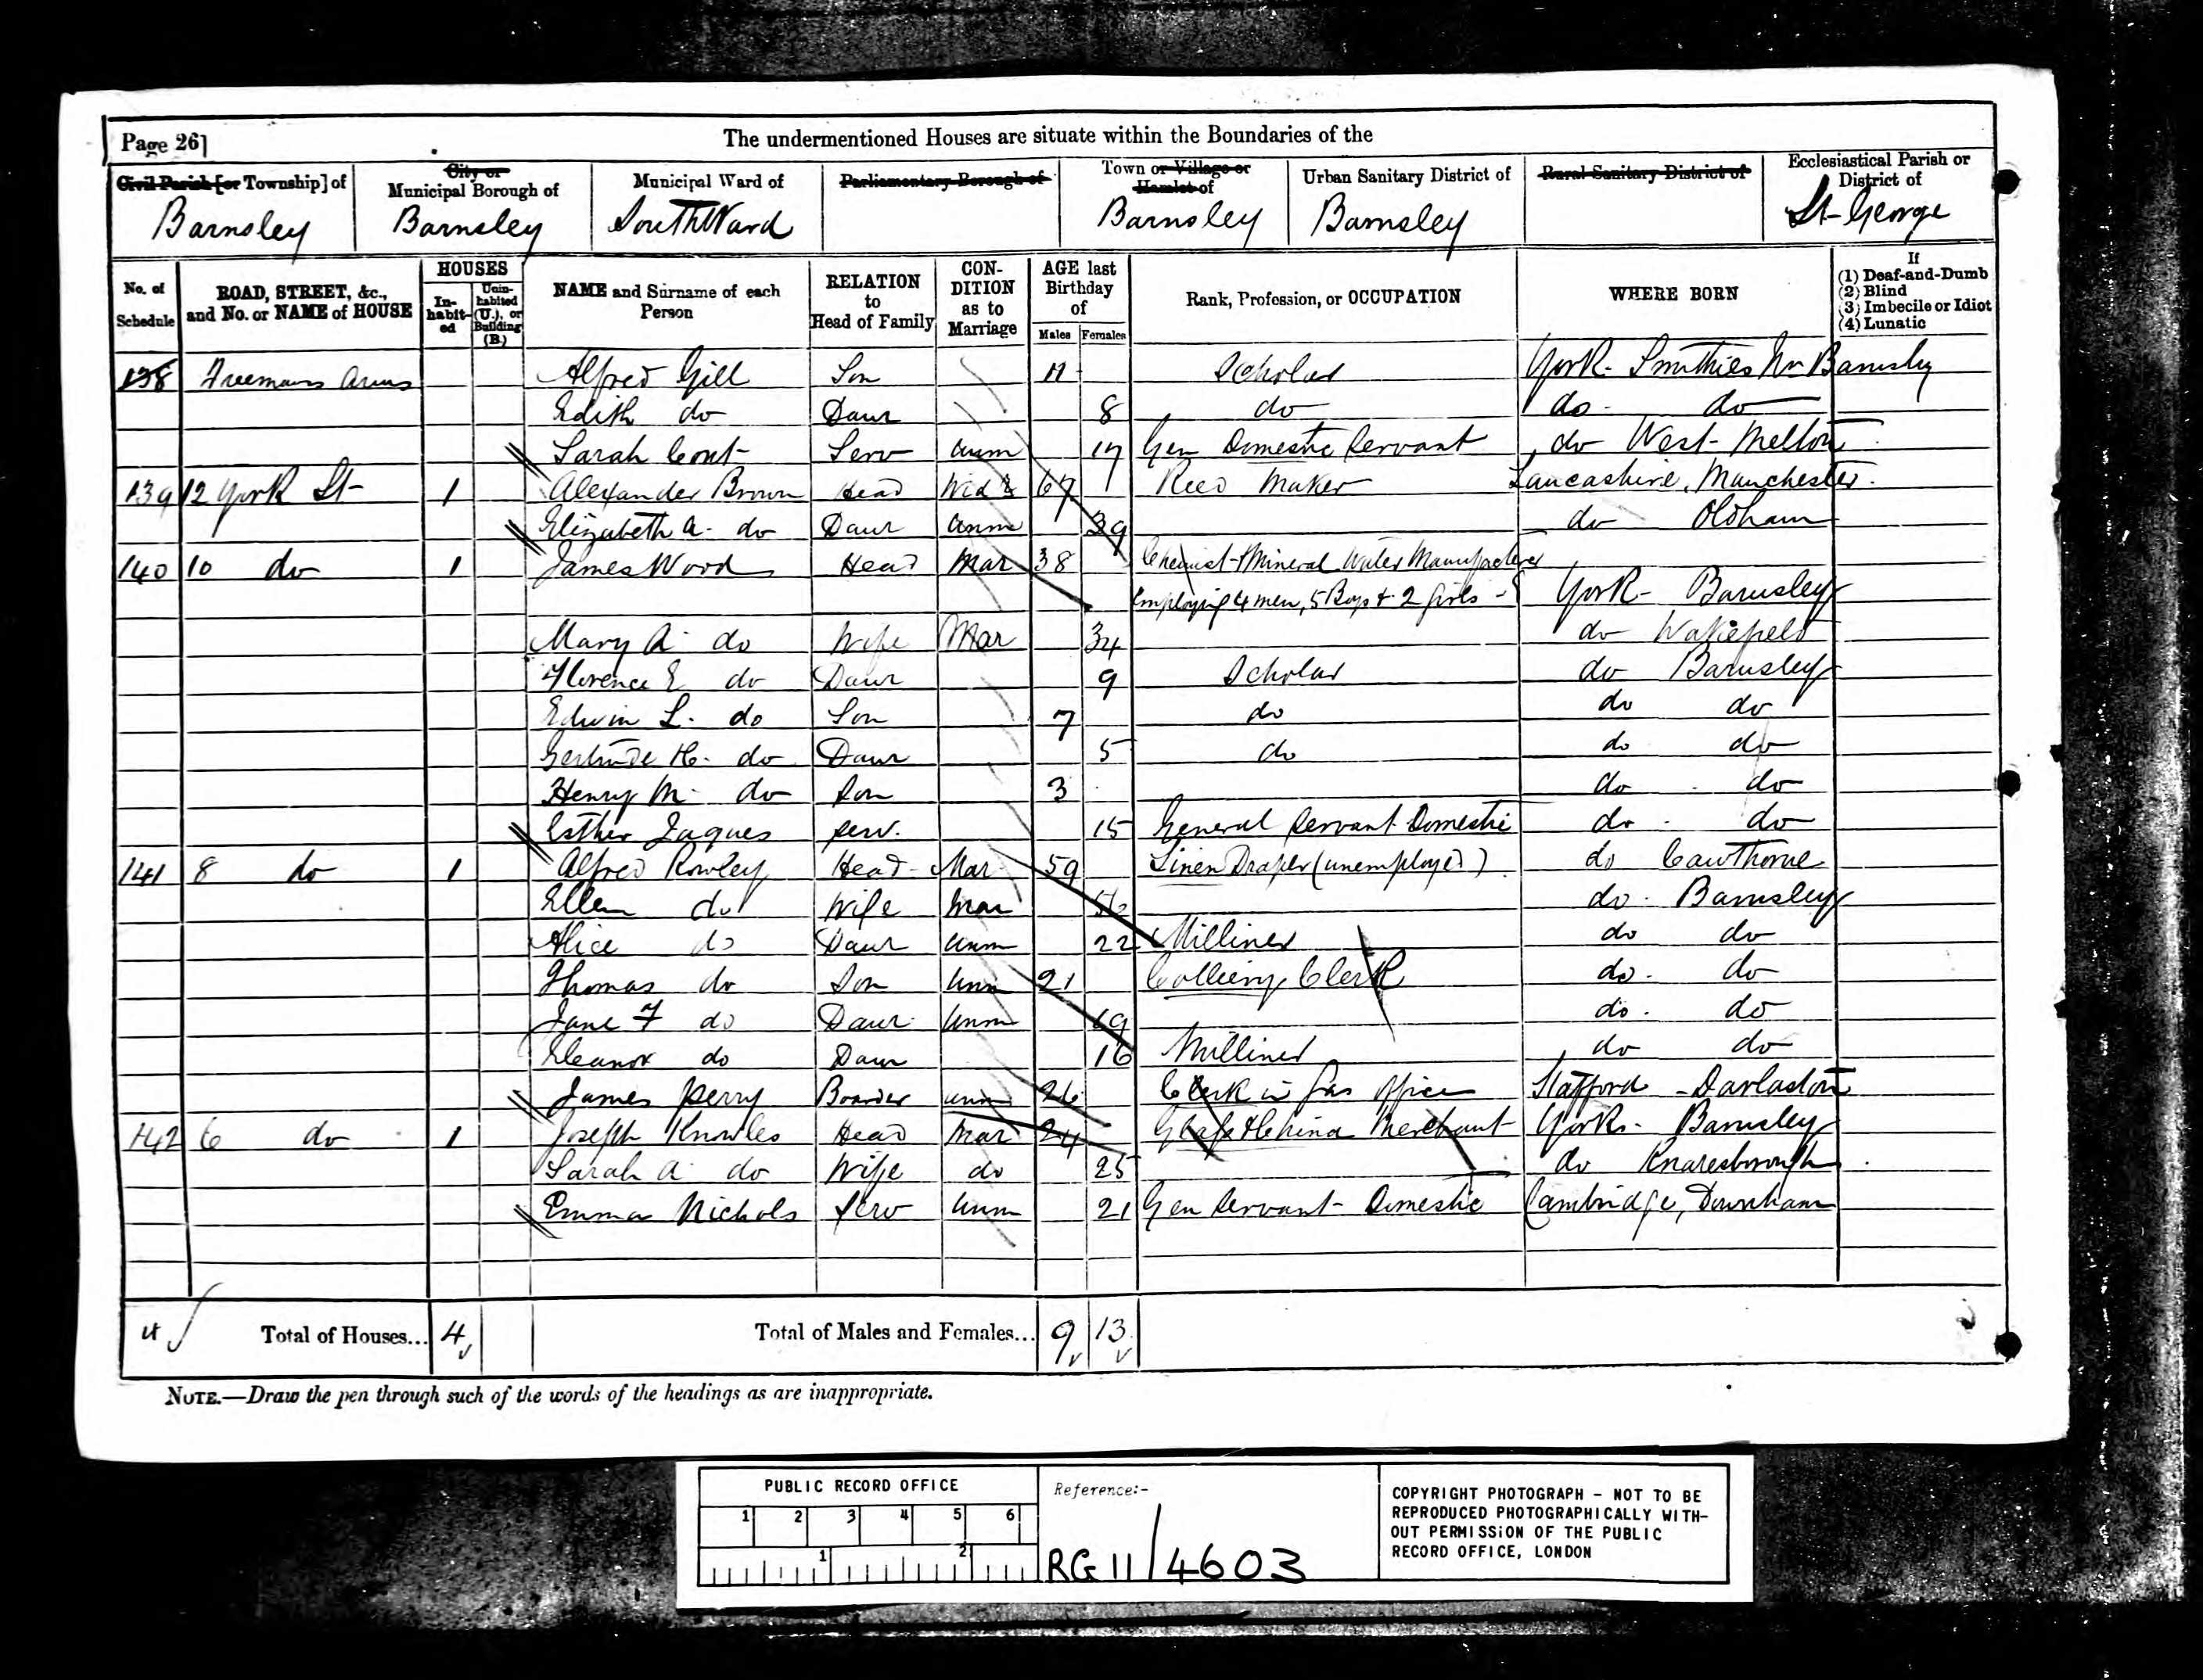 Page 26]
The undermentioned Houses are situate within the Boundaries of the
Civil Parish [or Township] of
Barnsley
City or Municipal Borough of
Barnsley
Municipal Ward of
South Ward
Parliamentary Borough of
Town or Village or Hamlet of
Barnsley
Urban Sanitary District of
Barnsley
Rural Sanitary District of
Ecclesiastical Parish or District of
St. George
No. of Schedule
ROAD, STREET, &c., and No. or NAME of HOUSE
HOUSES
In-habit-ed
Unin-habited (U.), or Building (B.)
NAME and Surname of each Person
RELATION to Head of Family
CON-DITION as to Marriage
AGE last Birthday of
Males
Females
Rank, Profession, or OCCUPATION
WHERE BORN
If
(1) Deaf-and-Dumb
(2) Blind
(3) Imbecile or Idiot
(4) Lunatic
138 Freemans Arms Alfred Gill Son 11 Scholar York - Smithies Nr Barnsley
Edith do Daur 8 do do - do
Sarah Serv unm 17 Gen Domestic Servant do West-Melton
139 12 York St 1 Alexander Brown Head Widr 67 Reed Maker Lancashire, Manchester
Elizabeth A. do Daur unm 39 do Oldham
140 10 do 1 James Wood Head Mar 38 Chemist & Mineral Water Manufacturer
employing 4 men, 5 Boys & 2 girls - York - Barnsley
Mary A. do Wife Mar 34 do Wakefield
Florence E do Daur 9 Scholar do Barnsley
Edwin L. do Son 7 do do do
Gertrude H. do Daur 5 do do do
Henry M. do Son 3 do do
Esther Jaques Serv. 15 General Servant Domestic do do
141 8 do 1 Alfred Rowley Head Mar 59 Linen Draper (unemployed) do Cawthorne
Ellen do Wife Mar 56 do Barnsley
Alice do Daur unm 22 Milliner do do
Thomas do Son unm 21 Colliery Clerk do do
Jane F do Daur unm 19 do do
Eleanor do Daur 16 Milliner do do
James Perry Boarder unm 26 Clerk in Gas Office Stafford - Darlaston
142 6 do 1 Joseph Knowles Head Mar 24 Glass & China Merchant Yorks - Barnsley
Sarah A. do Wife do 25 do Knaresborough
Emma Nichols Serv unm 21 Gen Servant - Domestic Cambridge, Downham
4 Total of Houses... 4
Total of Males and Females... 9 13
NOTE.—Draw the pen through such of the words of the headings as are inappropriate.
PUBLIC RECORD OFFICE
1 2 3 4 5 6
1 2
Reference:-
RG 11/4603
COPYRIGHT PHOTOGRAPH - NOT TO BE
REPRODUCED PHOTOGRAPHICALLY WITH-
OUT PERMISSION OF THE PUBLIC
RECORD OFFICE, LONDON